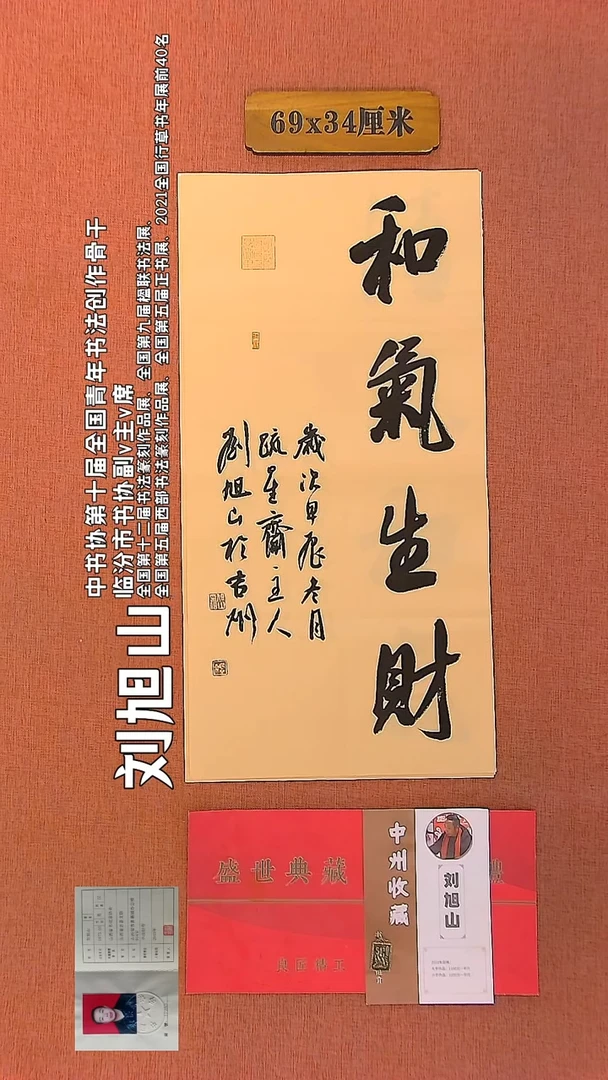 69x34厘米
和氣生財
歲次甲辰冬月
疏星齋主人
劉旭山於吉州
刘旭山
中书协第十届全国青年书法创作骨干
临汾市书协副v主v席
全国第十二届书法篆刻作品展、全国第九届楹联书法展、
全国第五届西部书法篆刻作品展、全国第五届正书展、2021全国行草书年展前40名
盛世典藏
中州收藏
刘旭山